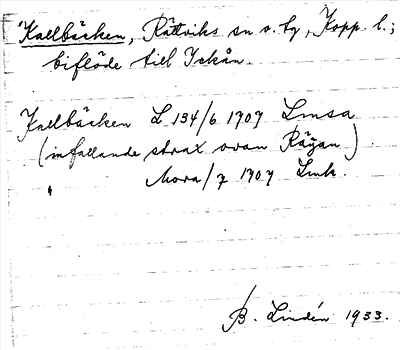 Kallbäcken, Rättviks sn o. tg, Kopp. l.;
biflöde till Ickån.
Kallbäcken L 134/6 1707 Lmsa
(infallande strax ovan Räyan)
Mora/7 1707 Lmk.
B. Lindén 1933.